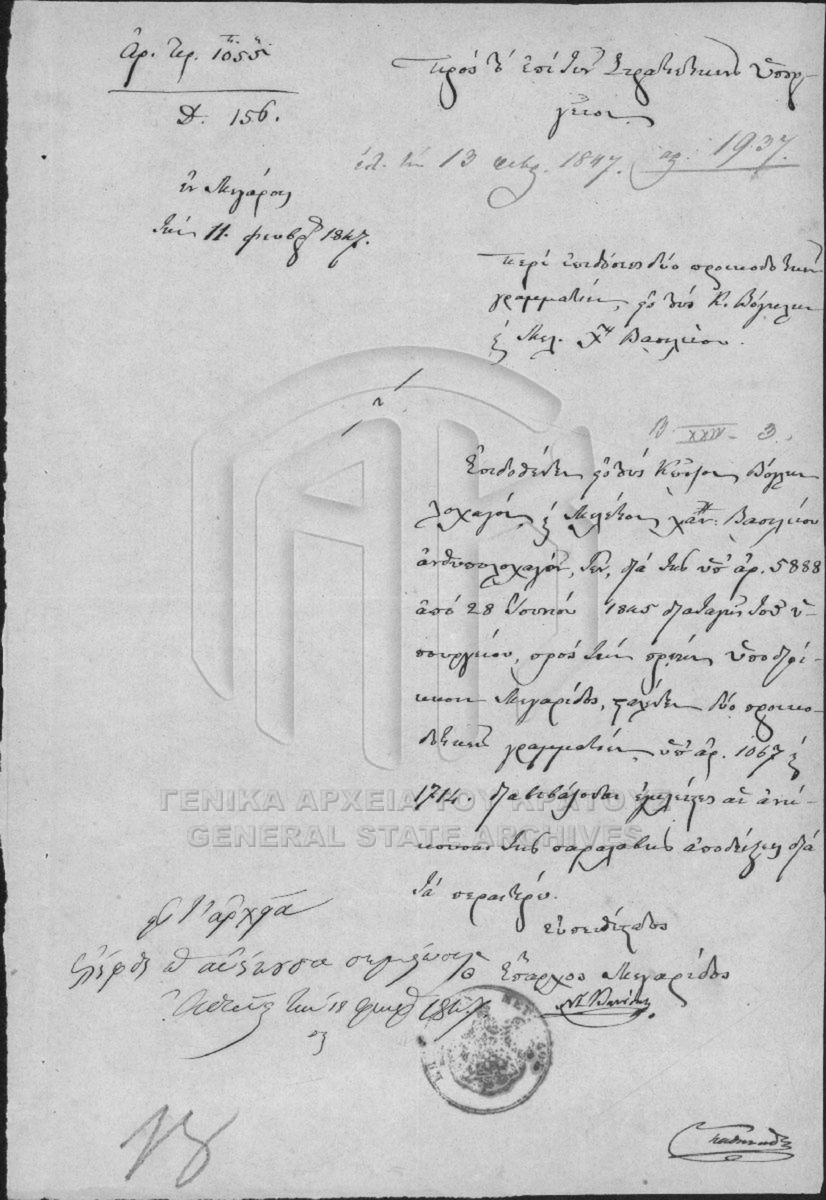 Ἀρ. Πρ. 1055
Δ. 156.
ἐν Μεγάροις
τὴν 11 φεβρ 1847.
Πρὸς τὸ ἐπὶ τῶν Στρατιωτικῶν Ὑπουρ-
γεῖον
τὴν 13 φεβρ. 1847. αρ. 1937.
περὶ ἐπιδόσεως δύο προικοδοτικῶν
γραμματίων, εἰς τοὺς Κ. Βόγκλην
Μελ. Χ Βασιλείου.
B XXIV - 3.
Ἐπιδοθέντων εἰς τοὺς Βόγκλην
λοχαγόν, Μελέτιον χατζη Βασιλείου
ἀνθυπολοχαγόν, τῶν, διὰ τῆς ὑπ' ἀρ. 5888
ἀπὸ 28 Ἰουνίου 1845 διαταγῆς τοῦ ὑ-
πουργείου, πρὸς τὴν πρώην ὑποδιοί-
κησιν Μεγαρίδος, σταλέντων δύο προικο-
δοτικῶν γραμματίων, ὑπ' ἀρ. 1067
1714. διαβιβάζονται αἱ ἀνή-
κουσαι τῆς παραλαβῆς ἀποδείξεις διὰ
τὰ περαιτέρω.
εὐπειθέστατος
Ὁ Ἔπαρχος Μεγαρίδος
Ἀθῆναι τὴν 18 φεβρ 1847
ΓΕΝΙΚΑ ΑΡΧΕΙΑ ΤΟΥ ΚΡΑΤΟΥΣ
GENERAL STATE ARCHIVES